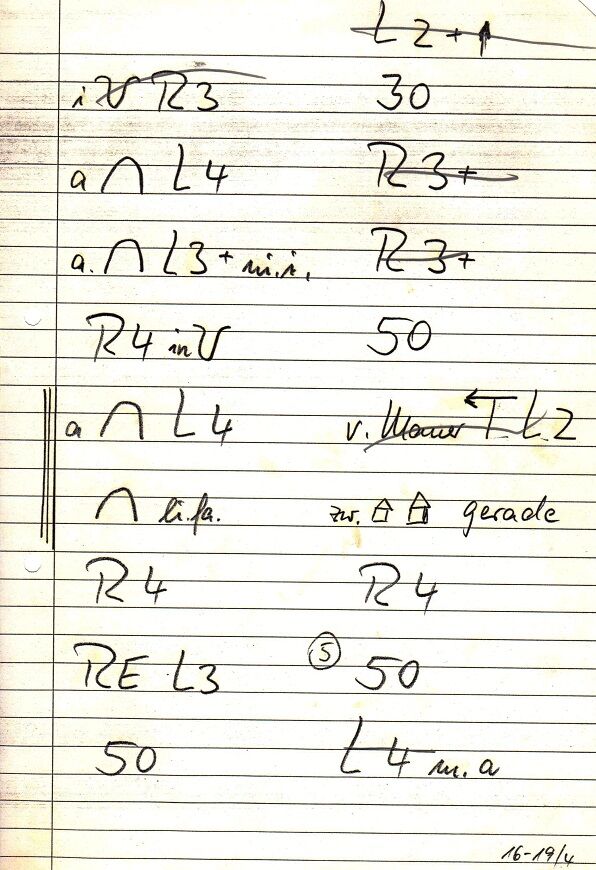 L2+↑
i V R3 30
a ∩ L4 R3+
a. ∩ L3+ m.i. R3+
R4 in V 50
a ∩ L4 v. Mauer ←T L2
∩ li.fa. zw. gerade
R4 R4
RE L3 ⑤ 50
50 L4 m.a
16-19/4